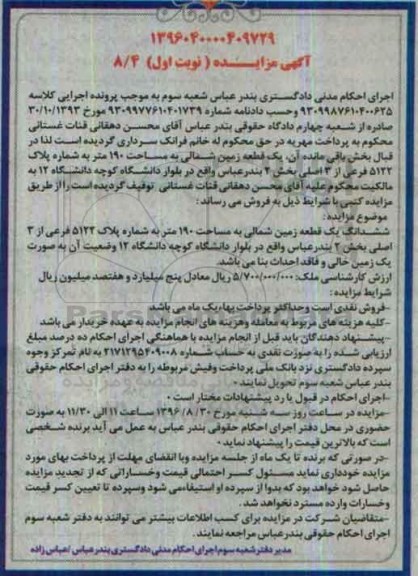 ۱۳۹۶۰۴۰۰۰۰۴۰۹۷۲۹
آگهی مزایـــده ( نوبت اول) ۸/۴
اجرای احکام مدنی دادگستری بندر عباس شعبه سوم به موجب پرونده اجرایی کلاسه
۹۳۰۹۹۸۷۶۱۰۴۰۰۶۲۵ وحسب دادنامه شماره ۹۳۰۹۹۷۷۶۱۰۴۰۱۷۳۹ مورخ ۳۰/۱۰/۱۳۹۳
صادره از شعبه چهارم دادگاه حقوقی بندر عباس آقای محسن دهقانی قنات غستانی
محکوم به پرداخت مهریه در حق محکوم له خانم فرانک سرداری گردیده است لذا در
قبال بخش باقی مانده آن، یک قطعه زمین شمالی به مساحت ۱۹۰ متر به شماره پلاک
۵۱۲۲ فرعی از ۳ اصلی بخش ۲ بندرعباس واقع در بلوار دانشگاه کوچه دانشگاه ۱۲ به
مالکیت محکوم علیه آقای محسن دهقانی قنات غستانی توقیف گردیده است را از طریق
مزایده کتبی با شرایط ذیل به فروش می رساند :
موضوع مزایده :
ششدانگ یک قطعه زمین شمالی به مساحت ۱۹۰ متر به شماره پلاک ۵۱۲۲ فرعی از ۳
اصلی بخش ۲ بندرعباس واقع در بلوار دانشگاه کوچه دانشگاه ۱۲ وضعیت آن به صورت
یک زمین خالی و فاقد احداث بنا می باشد.
ارزش کارشناسی ملک: ۵/۷۰۰/۰۰۰/۰۰۰ ریال معادل پنج میلیارد و هفتصد میلیون ریال
شرایط مزایده :
-فروش نقدی است وحداکثر پرداخت بها، یک ماه می باشد
-کلیه هزینه های مربوط به معامله وهزینه های انجام مزایده به عهده خریدار می باشد
-پیشنهاد دهندگان باید قبل از انجام مزایده با هماهنگی اجرای احکام ده درصد مبلغ
ارزیابی شده را به صورت نقدی به حساب شماره ۲۱۷۱۲۹۵۴۰۹۰۰۸ به نام تمرکز وجوه
سپرده دادگستری نزد بانک ملی پرداخت وفیش مربوطه را به دفتر اجرای احکام حقوقی
بندر عباس شعبه سوم تحویل نمایند.
-اجرای احکام در قبول یا رد پیشنهادات مختار است.
-مزایده در ساعت روز سه شنبه مورخ ۱۳۹۶/۸/۳۰ ساعت ۱۱ الی ۱۱/۳۰ به صورت
حضوری در محل دفتر اجرای احکام حقوقی بندر عباس به عمل می آید برنده شخصی
است که بالاترین قیمت را پیشنهاد نماید.
-در صورتی که برنده تا یک ماه از جلسه مزایده وبا انقضای مهلت از پرداخت بهای مورد
مزایده خودداری نماید مسئول کسر احتمالی قیمت وخساراتی که از تجدید مزایده
حاصل شود خواهد بود که بدوا از سپرده او استیفا می شود وسپرده تا تعیین کسر قیمت
وخسارات وارده مسترد نخواهد شد.
-متقاضیان شرکت در مزایده برای کسب اطلاعات بیشتر می توانند به دفتر شعبه سوم
اجرای احکام حقوقی بندرعباس مراجعه نمایند.
مدیر دفتر شعبه سوم اجرای احکام مدنی دادگستری بندرعباس /عباس زاده